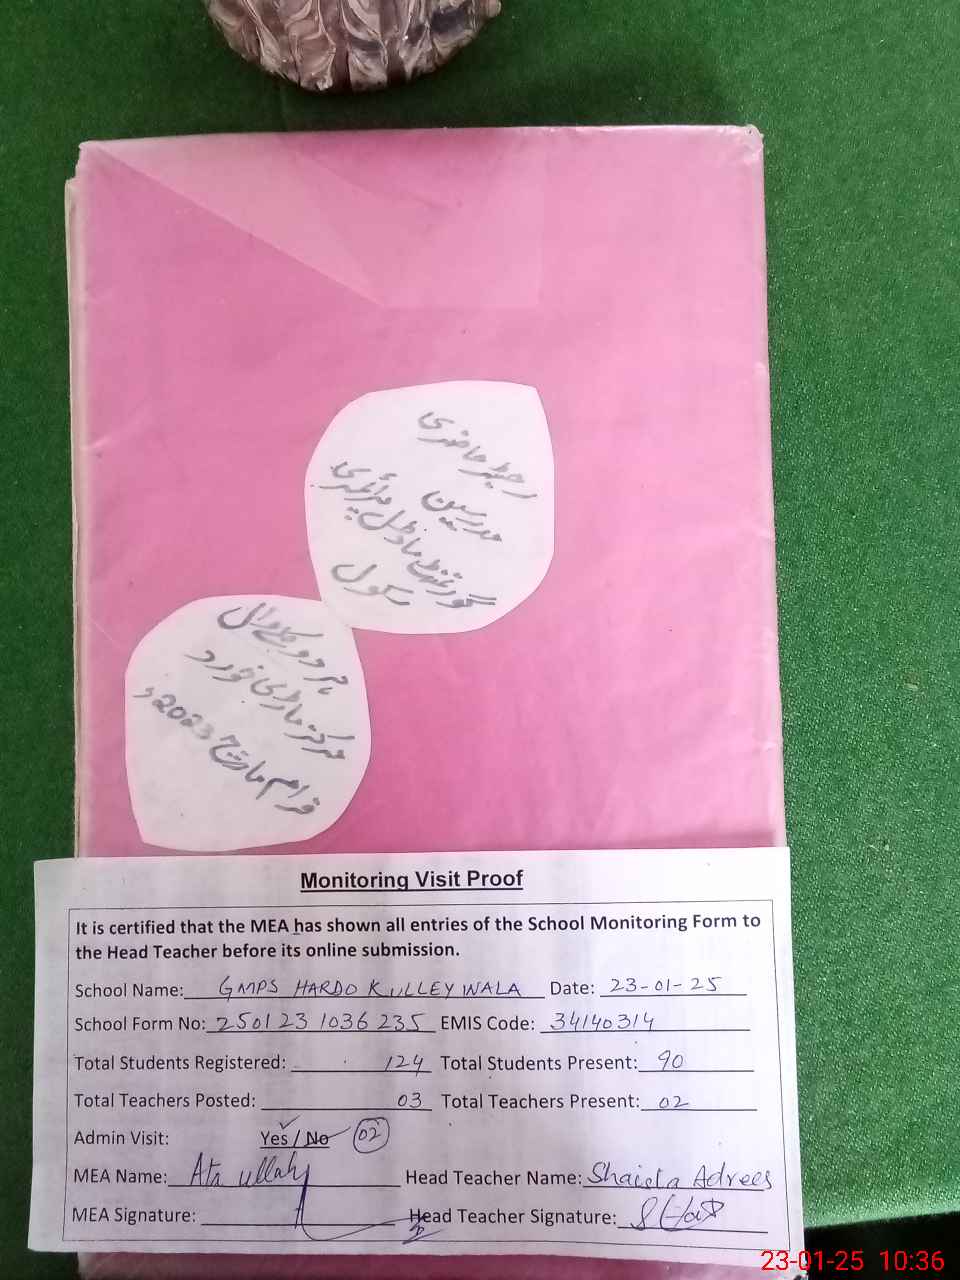 رجسٹر حاضری
مدرسین
گورنمنٹ ماڈل پرائمری
سکول
ہردو کلے والی
مرکز ماڑی خورد
فرام مارچ 2023ء
Monitoring Visit Proof
It is certified that the MEA has shown all entries of the School Monitoring Form to
the Head Teacher before its online submission.
School Name: GMPS HARDO KILLEY WALA Date: 23-01-25
School Form No: 250123 1036 235 EMIS Code: 34140314
Total Students Registered: 124 Total Students Present: 90
Total Teachers Posted: 03 Total Teachers Present: 02
Admin Visit: Yes / No 02
MEA Name: Ata ullah Head Teacher Name: Shaista Adrees
MEA Signature: Head Teacher Signature:
23-01-25 10:36